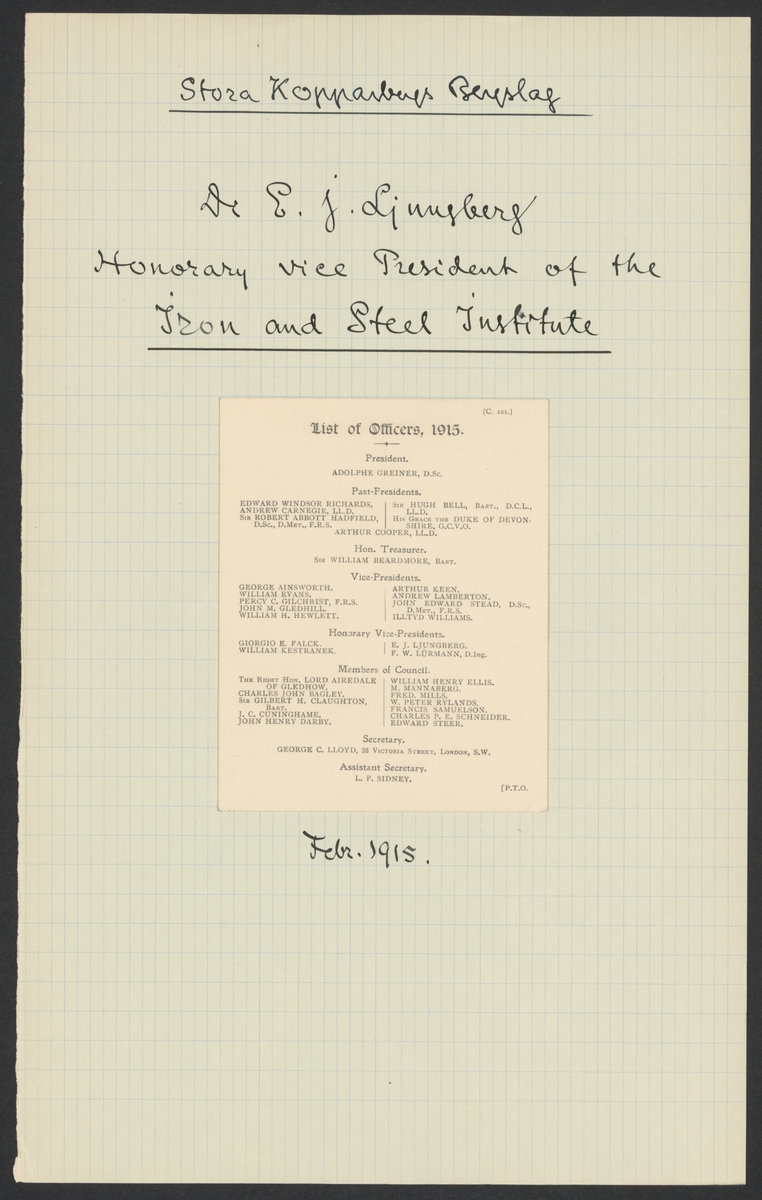 Stora Kopparbergs Bergslag
Dr E. J. Ljungberg
Honorary vice President of the
Iron and Steel Institute
[C. 121.]
List of Officers, 1915.
President.
ADOLPHE GREINER, D.Sc.
Past-Presidents.
EDWARD WINDSOR RICHARDS.
ANDREW CARNEGIE, LL.D.
Sir ROBERT ABBOTT HADFIELD,
D.Sc., D.Met., F.R.S.
Sir HUGH BELL, Bart., D.C.L.,
LL.D.
His Grace the DUKE OF DEVON-
SHIRE, G.C.V.O.
ARTHUR COOPER, LL.D.
Hon. Treasurer.
Sir WILLIAM BEARDMORE, Bart.
Vice-Presidents.
GEORGE AINSWORTH.
WILLIAM EVANS.
PERCY C. GILCHRIST, F.R.S.
JOHN M. GLEDHILL.
WILLIAM H. HEWLETT.
ARTHUR KEEN.
ANDREW LAMBERTON.
JOHN EDWARD STEAD, D.Sc.,
D.Met., F.R.S.
ILLTYD WILLIAMS.
Honorary Vice-Presidents.
GIORGIO E. FALCK.
WILLIAM KESTRANEK.
E. J. LJUNGBERG.
F. W. LÜRMANN, D.Ing.
Members of Council.
The Right Hon. LORD AIREDALE
OF GLEDHOW.
CHARLES JOHN BAGLEY.
Sir GILBERT H. CLAUGHTON,
Bart.
J. C. CUNINGHAME.
JOHN HENRY DARBY.
WILLIAM HENRY ELLIS.
M. MANNABERG.
FRED. MILLS.
W. PETER RYLANDS.
FRANCIS SAMUELSON.
CHARLES P. E. SCHNEIDER.
EDWARD STEER.
Secretary.
GEORGE C. LLOYD, 28 Victoria Street, London, S.W.
Assistant Secretary.
L. P. SIDNEY.
[P.T.O.
Febr. 1915.